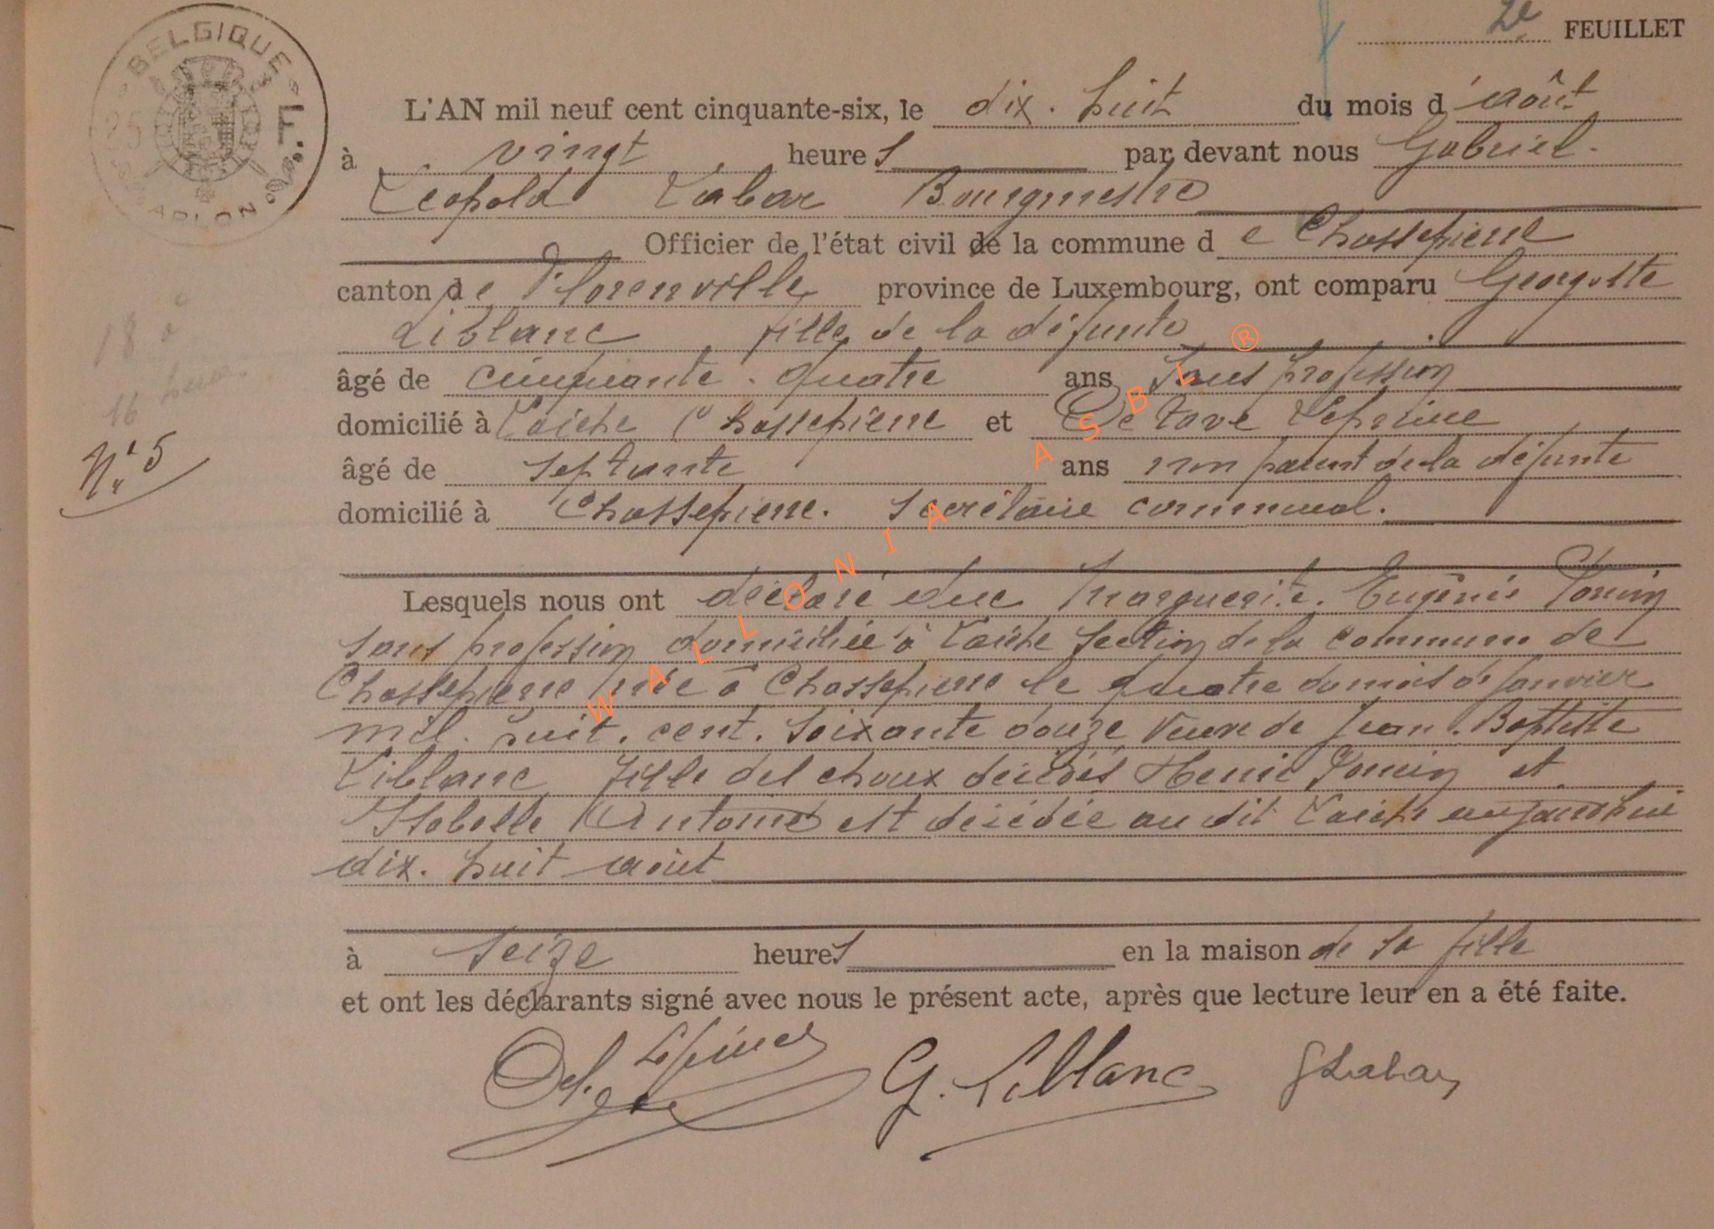 BELGIQUE
ARLON
2e FEUILLET
L'AN mil neuf cent cinquante-six, le dix-huit du mois d'août
à vingt heures par devant nous Gabriel
Léopold Labar Bourgmestre
Officier de l'état civil de la commune de Chassepierre
canton de Florenville province de Luxembourg, ont comparu
Leblanc fille de la défunte
âgé de cinquante-quatre ans sans profession
domicilié à Laiche Chassepierre et Octave
âgé de septante ans non parent de la défunte
domicilié à Chassepierre. Secrétaire communal.
N° 5
18 à
16 heures
Lesquels nous ont déclaré que Marguerite Eugénie
sans profession domiciliée à Laiche Section de la commune de
Chassepierre née à Chassepierre le quatre du mois de janvier
mil-huit-cent-soixante douze Veuve de Jean-Baptiste
Leblanc fille des époux décédés Henri et
Isabelle Antoine est décédée au dit Laiche aujourd'hui
dix-huit août
à seize heures en la maison de sa fille
et ont les déclarants signé avec nous le présent acte, après que lecture leur en a été faite.
G. Leblanc GLabar
WALLONIA ASBL ®